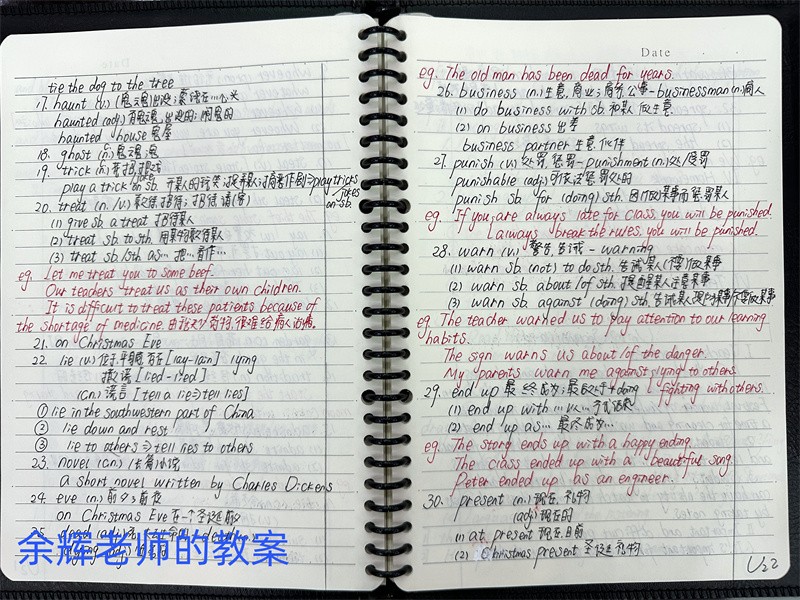 tie the dog to the tree
17. haunt (v.) (鬼魂)出没; 萦绕在…心头
haunted (adj) 有鬼魂出没的; 闹鬼的
haunted house 鬼屋
18. ghost (n.) 鬼魂; 鬼
19. trick (n.) 花招; 把戏
play a trick on sb. 开某人的玩笑; 捉弄某人; 搞恶作剧 ⇒ play tricks
jokes
on sb.
20. treat (n. /v.) 款待; 招待; 请(客)
(1) give sb a treat 招待某人
(2) treat sb. to sth. 用某物款待某人
(3) treat sb /sth as… 把…看作…
eg. Let me treat you to some beef.
Our teachers treat us as their own children.
It is difficurt to treat these patients because of
the shortage of medicine. 由于缺少药物, 很难给病人治病.
21. on Christmas Eve
22. lie (v.) 位于; 平躺; 存在 [lay-lain] lying
撒谎 [lied-lied]
(n.) 谎言 [tell a lie ⇒ tell lies]
① lie in the southwestern part of China
② lie down and rest
③ lie to others ⇒ tell lies to others
23. novel (n.) 长篇小说
a short novel written by Charles Dickens
24. eve (n.) 前夕; 前夜
on Christmas Eve 在一个圣诞前夕
25.
余辉老师的教案
Date
eg. The old man has been dead for years.
26. business (n.) 生意, 商业; 商务; 公事 - businessman (n.) 商人
(1) do business with sb. 和某人做生意
(2) on business 出差
business partner 生意伙伴
27. punish (v.) 处罚; 惩罚 - punishment (n.) 处/惩罚
punishable (adj) 可依法惩罚处的
punish sb. for (doing) sth. 因(做)某事而惩罚某人
eg. If you are always late for class, you will be punished.
always break the rules, you will be punished.
28. warn (v.) 警告, 告诫 - warning
(1) warn sb (not) to do sth. 告诫某人(不要)做某事
(2) warn sb. about /of sth. 提醒某人注意某事
(3) warn sb. against (doing) sth. 告诫某人提防某事/不要做某事
eg. The teacher warned us to pay attention to our learning
habits.
The sign warns us about /of the danger.
My parents warn me against lying to others.
fighting with others.
29. end up 最终成为; 最后处于 + doing
(1) end up with … 以…方式结束
(2) end up as … 最终成为…
eg. The story ends up with a happy ending.
The class ended up with a beautiful song.
Peter ended up as an engineer.
30. present (n.) 现在, 礼物
(adj) 现在的
(1) at present 现在, 目前
(2) Christmas present 圣诞礼物